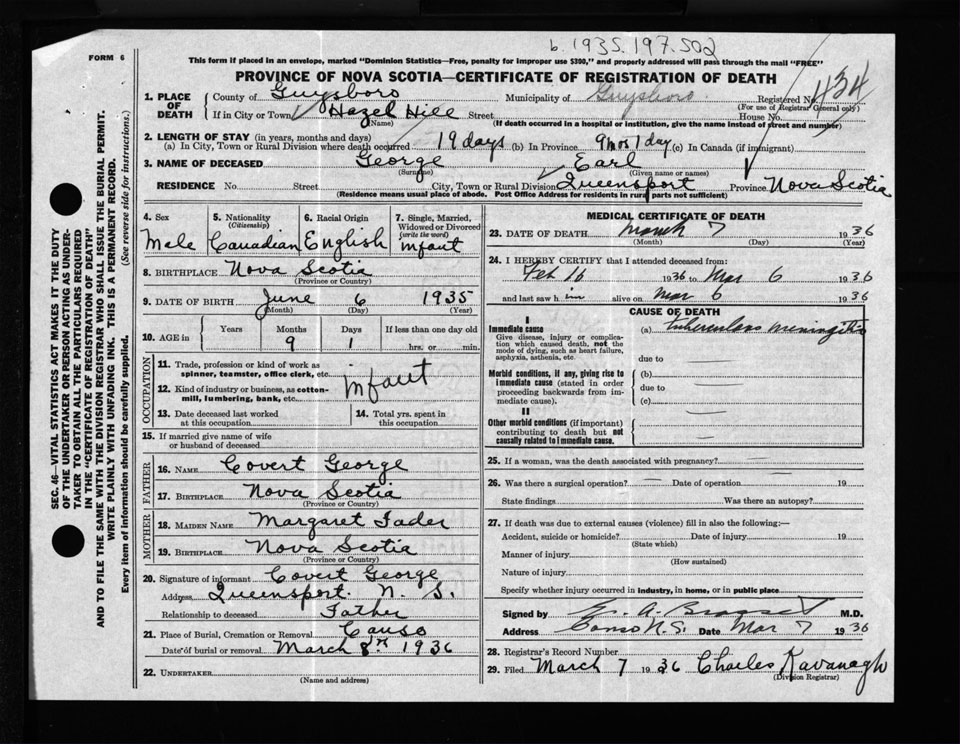 b. 1935.197.502
FORM 6
This form if placed in an envelope, marked "Dominion Statistics—Free, penalty for improper use $300," and properly addressed will pass through the mail "FREE"
PROVINCE OF NOVA SCOTIA—CERTIFICATE OF REGISTRATION OF DEATH
434
1. PLACE OF DEATH County of Guysboro Municipality of Guysboro Registered No.
(For use of Registrar General only)
If in City or Town Hazel Hill Street House No.
(Name) (If death occurred in a hospital or institution, give the name instead of street and number)
2. LENGTH OF STAY (in years, months and days)
(a) In City, Town or Rural Division where death occurred 19 days (b) In Province 9 mos 1 day (c) In Canada (if immigrant)
3. NAME OF DECEASED George Earl
(Surname) (Given name or names)
RESIDENCE No. Street City, Town or Rural Division Queensport Province Nova Scotia
(Residence means usual place of abode. Post Office Address for residents in rural parts not sufficient)
4. Sex 5. Nationality 6. Racial Origin 7. Single, Married, Widowed or Divorced
(Citizenship) (write the word)
Male Canadian English infant
8. BIRTHPLACE Nova Scotia
(Province or Country)
9. DATE OF BIRTH June 6 1935
(Month) (Day) (Year)
10. AGE in Years Months Days If less than one day old
9 1 hrs. or min.
OCCUPATION
11. Trade, profession or kind of work as spinner, teamster, office clerk, etc.
12. Kind of industry or business, as cotton-mill, lumbering, bank, etc.
infant
13. Date deceased last worked at this occupation
14. Total yrs. spent in this occupation
15. If married give name of wife or husband of deceased
FATHER
16. NAME Covert George
17. BIRTHPLACE Nova Scotia
(Province or Country)
MOTHER
18. MAIDEN NAME Margaret Fader
19. BIRTHPLACE Nova Scotia
(Province or Country)
20. Signature of informant Covert George
Address Queensport N. S.
Relationship to deceased Father
21. Place of Burial, Cremation or Removal Canso
Date of burial or removal March 8th 1936
22. UNDERTAKER
(Name and address)
MEDICAL CERTIFICATE OF DEATH
23. DATE OF DEATH March 7 1936
(Month) (Day) (Year)
24. I HEREBY CERTIFY that I attended deceased from:
Feb 16 1936 to Mar 6 1936
and last saw h im alive on Mar 6 1936
CAUSE OF DEATH
I
Immediate cause (a) tuberculous meningitis
Give disease, injury or complication which caused death, not the mode of dying, such as heart failure, asphyxia, asthenia, etc.
due to
Morbid conditions, if any, giving rise to immediate cause (stated in order proceeding backwards from immediate cause).
(b)
due to
(c)
II
Other morbid conditions (if important) contributing to death but not causally related to immediate cause.
25. If a woman, was the death associated with pregnancy?
26. Was there a surgical operation? Date of operation 19
State findings Was there an autopsy?
27. If death was due to external causes (violence) fill in also the following:—
Accident, suicide or homicide? Date of injury 19
(State which)
Manner of injury
(How sustained)
Nature of injury
Specify whether injury occurred in industry, in home, or in public place
Signed by M.D.
Address Canso N.S. Date Mar 7 1936
28. Registrar's Record Number
29. Filed March 7 1936 Charles Kavanagh
(Division Registrar)
SEC. 46—VITAL STATISTICS ACT MAKES IT THE DUTY
OF THE UNDERTAKER OR PERSON ACTING AS UNDER-
TAKER TO OBTAIN ALL THE PARTICULARS REQUIRED
IN THE "CERTIFICATE OF REGISTRATION OF DEATH"
AND TO FILE THE SAME WITH THE DIVISION REGISTRAR WHO SHALL ISSUE THE BURIAL PERMIT.
WRITE PLAINLY WITH UNFADING INK. THIS IS A PERMANENT RECORD.
Every item of information should be carefully supplied. (See reverse side for instructions.)